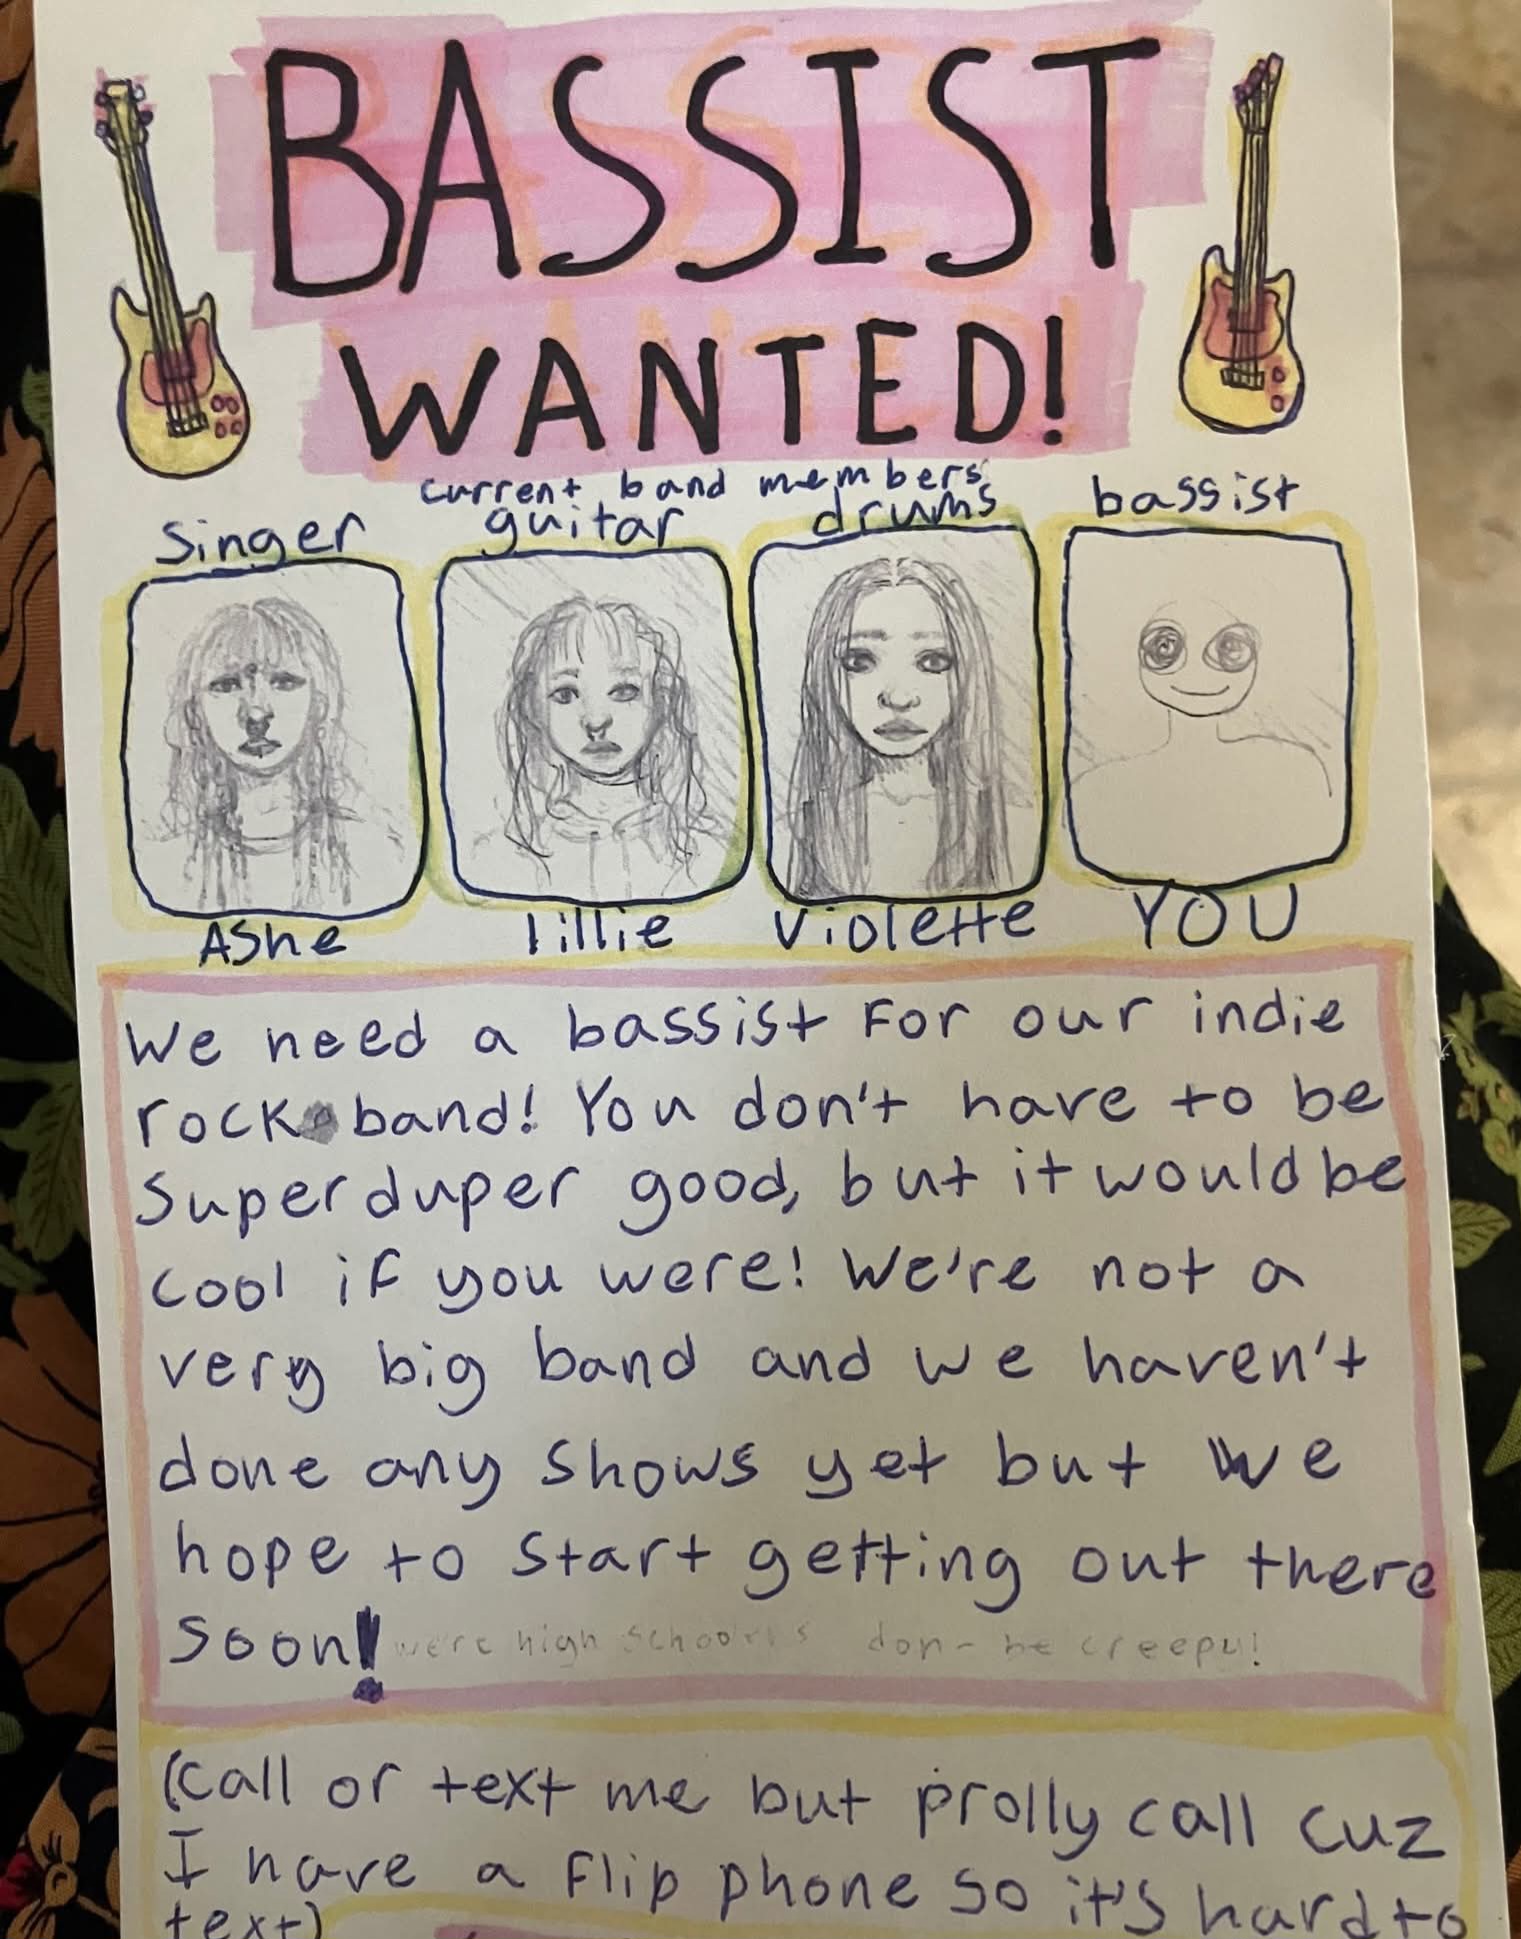 BASSIST
WANTED!
current band members
singer guitar drums bassist
Ashe lillie Violette YOU
We need a bassist for our indie
rock band! You don't have to be
super duper good, but it would be
cool if you were! We're not a
very big band and we haven't
done any shows yet but we
hope to start getting out there
soon! we're high schoolers don- be creepy!
(call or text me but prolly call cuz
I have a flip phone so it's hard to
text)